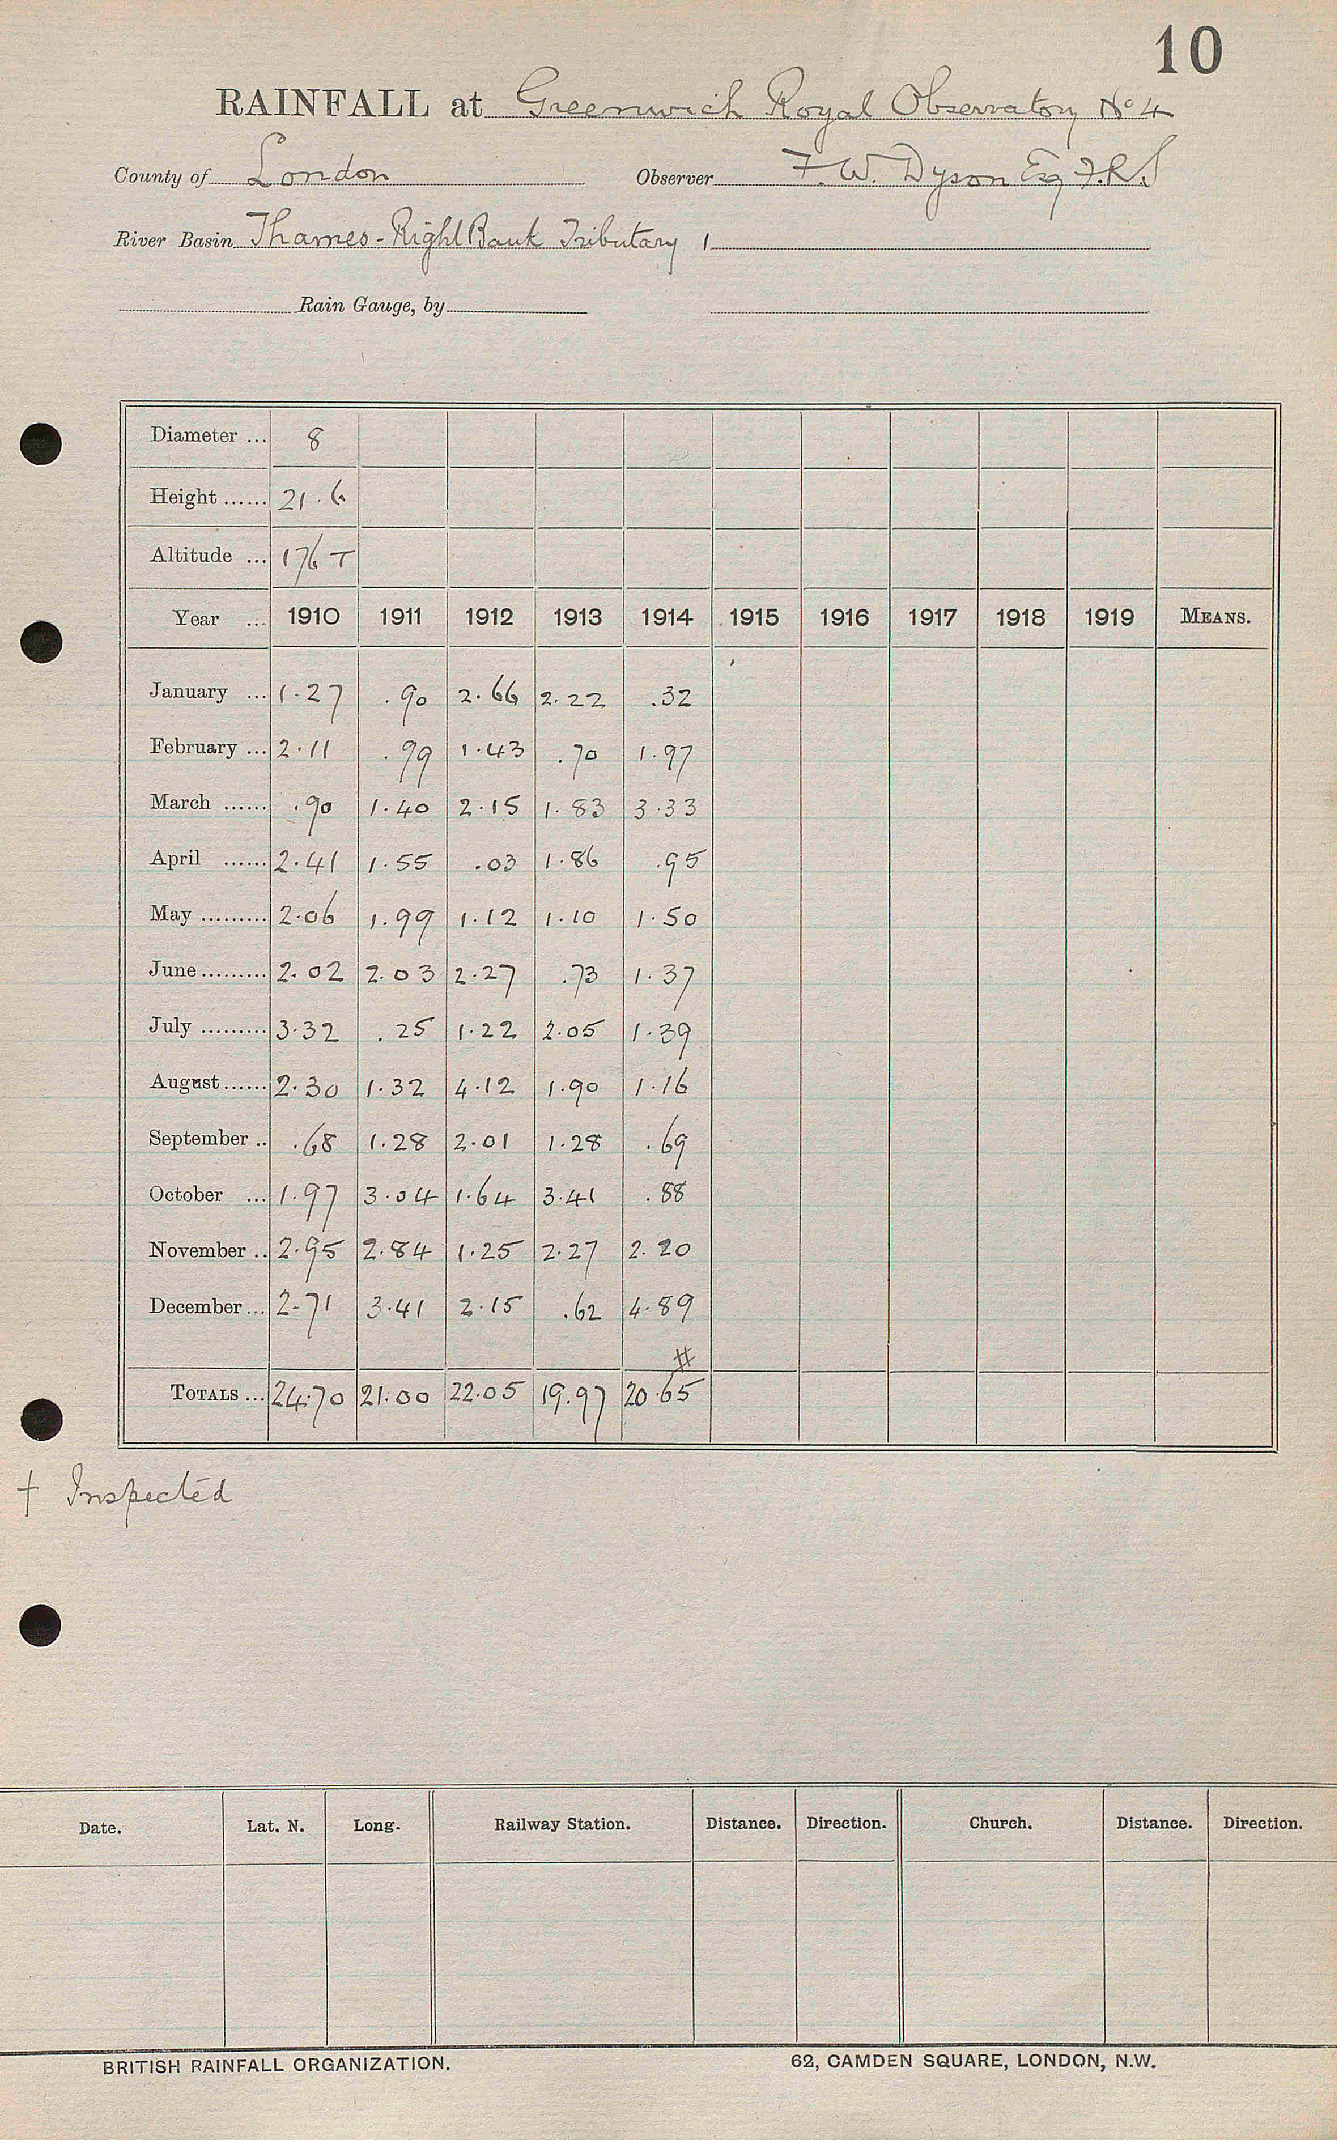 10
RAINFALL at Greenwich Royal Observatory No 4
County of London Observer F. W. Dyson Esq F.R.S
River Basin Thames - Right Bank Tributary 1
Rain Gauge, by
Diameter ... 8
Height ...... 21.6
Altitude ... 176 T
Year ... 1910 1911 1912 1913 1914 1915 1916 1917 1918 1919 MEANS.
January ... 1.27 .90 2.66 2.22 .32
February ... 2.11 .99 1.43 .70 1.97
March ...... .90 1.40 2.15 1.83 3.33
April ...... 2.41 1.55 .03 1.86 .95
May ......... 2.06 1.99 1.12 1.10 1.50
June ......... 2.02 2.03 2.27 .73 1.37
July ......... 3.32 .25 1.22 2.05 1.39
August ...... 2.30 1.32 4.12 1.90 1.16
September .. .68 1.28 2.01 1.28 .69
October ... 1.97 3.04 1.64 3.41 .88
November .. 2.95 2.84 1.25 2.27 2.20
December ... 2.71 3.41 2.15 .62 4.89
#
TOTALS ... 24.70 21.00 22.05 19.97 20.65
† Inspected
Date. Lat. N. Long. Railway Station. Distance. Direction. Church. Distance. Direction.
BRITISH RAINFALL ORGANIZATION. 62, CAMDEN SQUARE, LONDON, N.W.